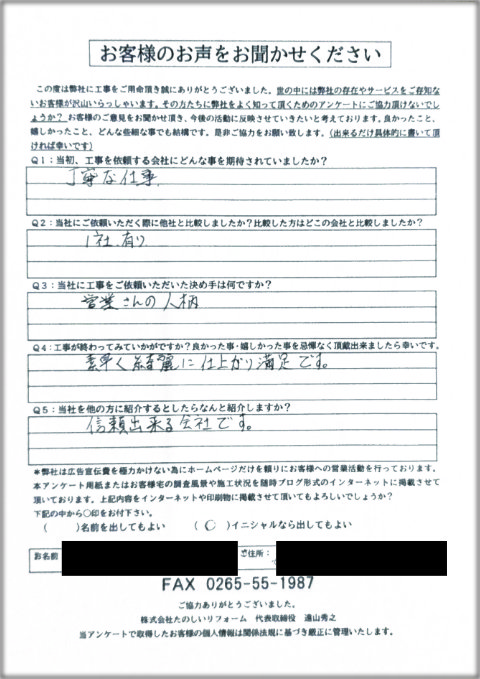 お客様のお声をお聞かせください
この度は弊社に工事をご用命頂き誠にありがとうございました。世の中には弊社の存在やサービスをご存知
ないお客様が沢山いらっしゃいます。その方たちに弊社をよく知って頂くためのアンケートにご協力頂けないでし
ょうか？お客様のご意見をお聞かせ頂き、今後の活動に反映させていきたいと考えております。良かったこと、
嬉しかったこと、どんな些細な事でも結構です。是非ご協力をお願い致します。(出来るだけ具体的に書いて頂
ければ幸いです)
Q1：当初、工事を依頼する会社にどんな事を期待されていましたか？
丁寧な仕事、
Q2：当社にご依頼いただく際に他社と比較しましたか？比較した方はどこの会社と比較しましたか？
1社、有り
Q3：当社に工事をご依頼いただいた決め手は何ですか？
営業さんの人柄
Q4：工事が終わってみていかがですか？良かった事・嬉しかった事を忌憚なく頂戴出来ましたら幸いです。
素早く綺麗に仕上がり満足です。
Q5：当社を他の方に紹介するとしたらなんと紹介しますか？
信頼出来る会社です。
＊弊社は広告宣伝費を極力かけない為にホームページだけを頼りにお客様への営業活動を行っております。
本アンケート用紙またはお客様宅の調査風景や施工状況を随時ブログ形式のインターネットに掲載させて
頂いております。上記内容をインターネットや印刷物に掲載させて頂いてもよろしいでしょうか？
下記の中から○印をお付下さい。
(　　)名前を出してもよい　(○)イニシャルなら出してもよい
お名前　ご住所：
FAX 0265-55-1987
ご協力ありがとうございました。
株式会社たのしいリフォーム　代表取締役　遠山秀之
当アンケートで取得したお客様の個人情報は関係法規に基づき厳正に管理いたします。